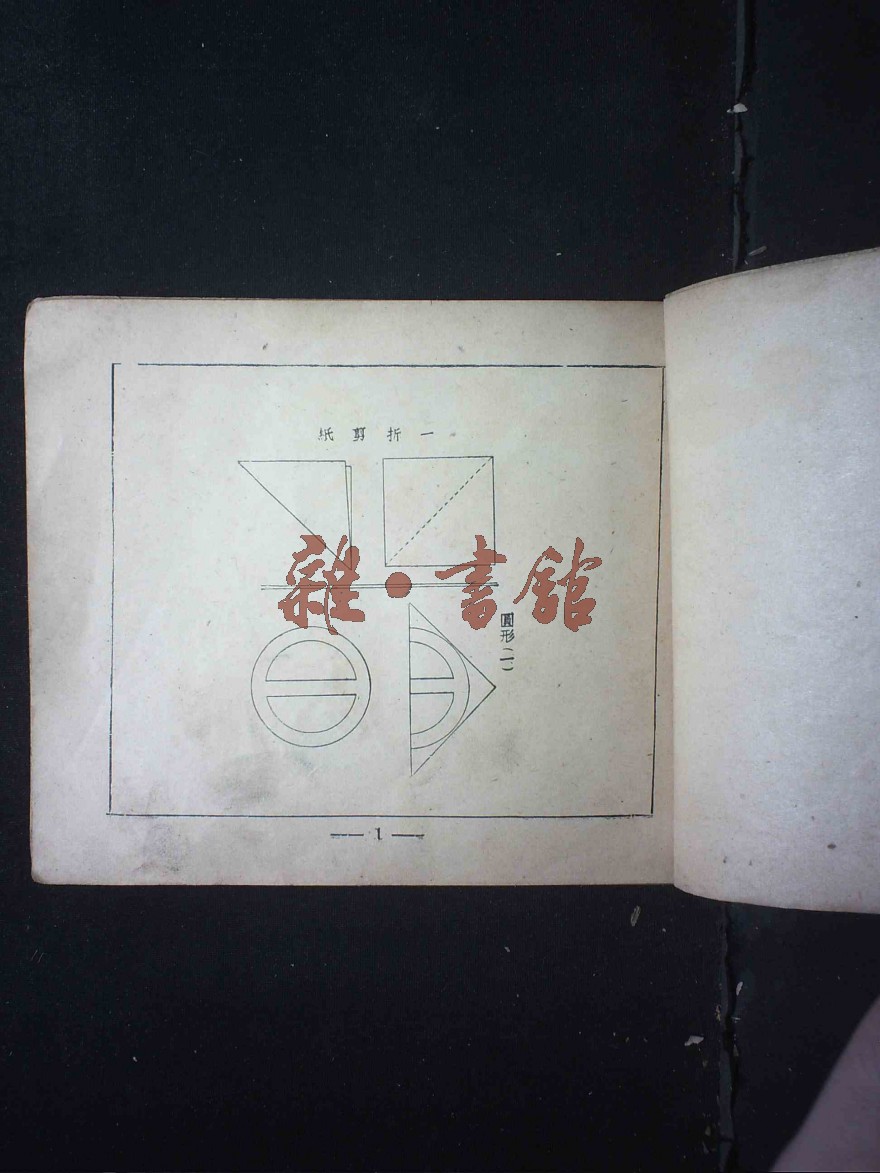 一折剪紙
雜·書館
圓形(一)
— 1 —